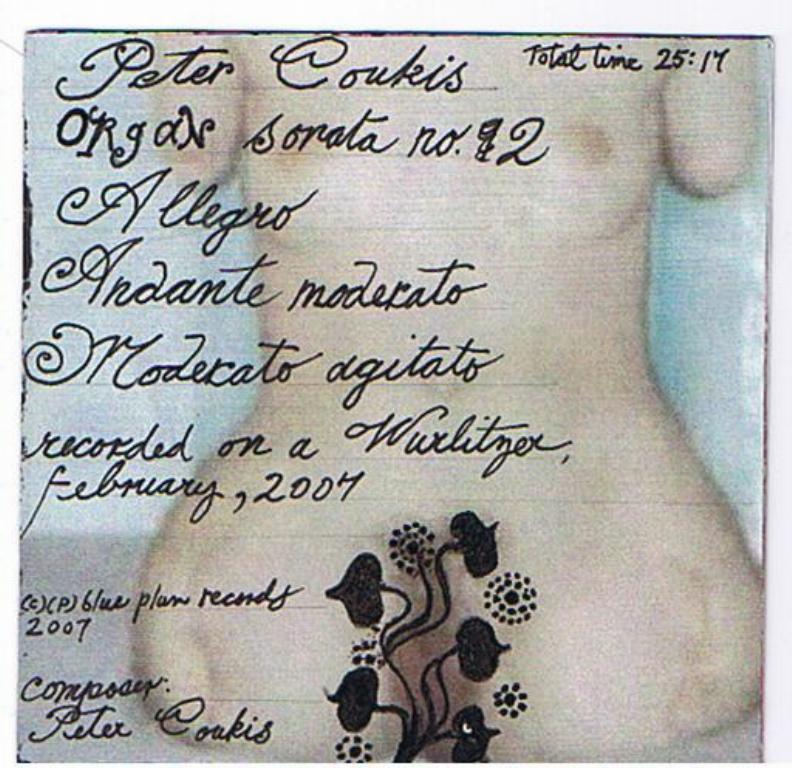 Peter Coukis
Total time 25:17
Organ sonata no. 12
Allegro
Andante moderato
Moderato agitato
recorded on a Wurlitzer,
february, 2007
(c)(p) blue plum records
2007
composer:
Peter Coukis